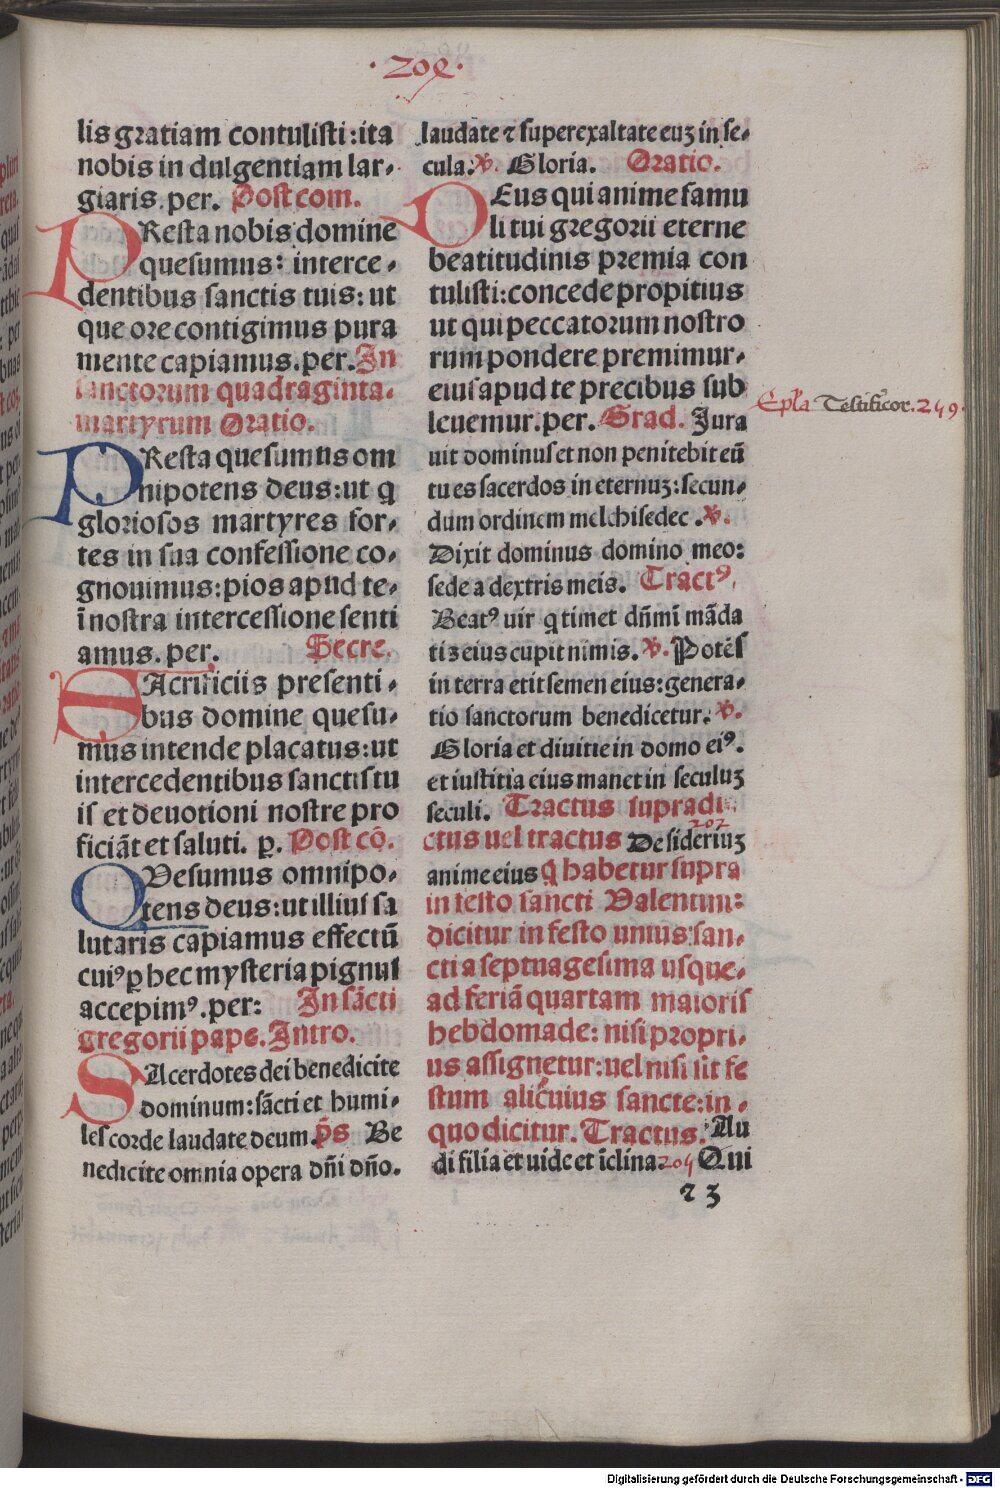 ·208·
lis gratiam contulisti:ita
nobis in dulgentiam lar-
giaris.per. Post com.
PResta nobis domine
quesumus: interce-
dentibus sanctis tuis:ut
que ore contigimus pura
mente capiamus.per.In
sanctorum quadraginta.
martyrum Oratio.
PResta quesumus om
nipotens deus:ut q
gloriosos martyres for-
tes in sua confessione co-
gnouimus:pios apud te-
ī nostra intercessione senti
amus.per. Secre.
SAcrificiis presenti-
bus domine quesu-
mus intende placatus:ut
intercedentibus sanctis tu
is et deuotioni nostre pro
ficiāt et saluti. ꝑ. Post cō.
QVesumus omnipo-
tens deus:ut illius sa
lutaris capiamus effectū
cuiꝰ ꝑ hec mysteria pignus
accepimꝰ.per: In sācti
gregorii pape. Intro.
SAcerdotes dei benedicite
dominum:sācti et humi-
les corde laudate deum.p̄s Be
nedicite omnia opera dn̄i dn̄o.
laudate ⁊ superexaltate euꝫ in se-
cula.℣. Gloria. Oratio.
DEus qui anime famu
li tui gregorii eterne
beatitudinis premia con
tulisti:concede propitius
ut qui peccatorum nostro
rum pondere premimur-
eius apud te precibus sub
leuemur.per. Grad. Jura
uit dominus et non penitebit eū
tu es sacerdos in eternuꝫ:secun-
dum ordinem melchisedec.℣.
Dixit dominus domino meo:
sede a dextris meis. Tractꝰ.
Beatꝰ uir q timet dn̄m ī māda
tis eius cupit nimis.℣. Potēs
in terra erit semen eius:genera-
tio sanctorum benedicetur.℣.
Gloria et diuitie in domo eiꝰ.
et iustitia eius manet in seculuꝫ
seculi. Tractus supradi
202
ctus uel tractus Desideriuꝫ
anime eius q habetur supra
in festo sancti Valentini:
dicitur in festo unius san-
cti a septuagesima usque-
ad feriā quartam maioris
hebdomade: nisi propri-
us assignetur:uel nisi sit fe
stum alicuius sancte:in-
quo dicitur. Tractus. Au
di filia et uide et īclina.204 Qui
23
Epla Testificor.249.
Digitalisierung gefördert durch die Deutsche Forschungsgemeinschaft - DFG